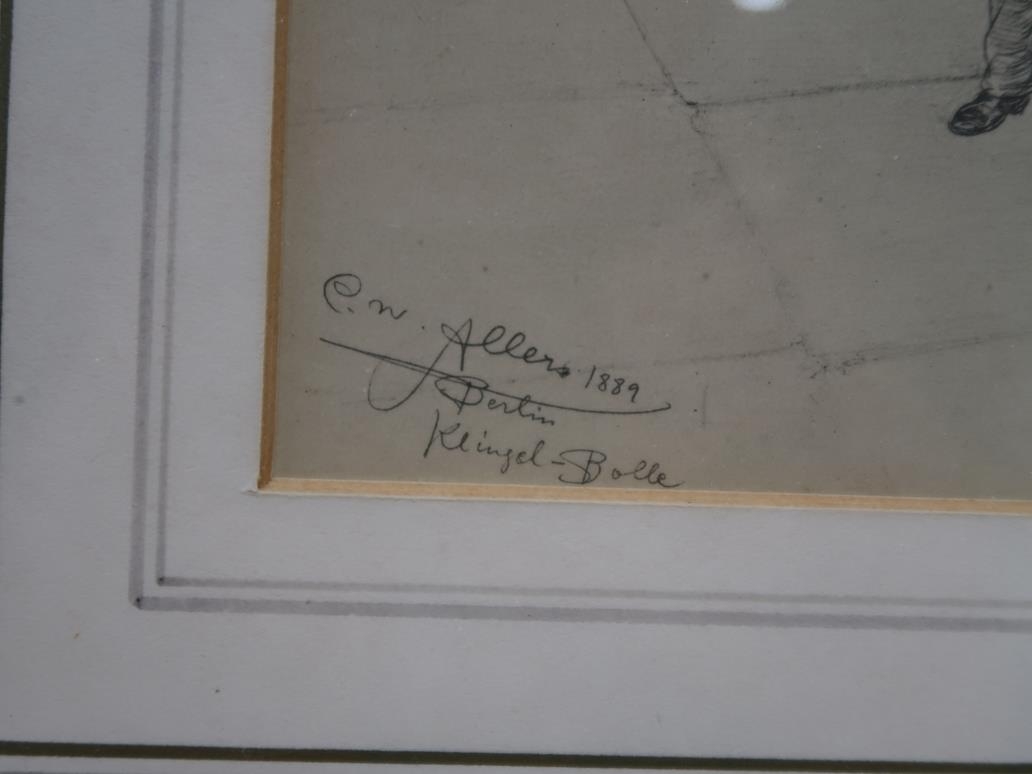 C. W. Allers 1889
Berlin
Klingel-Bolle